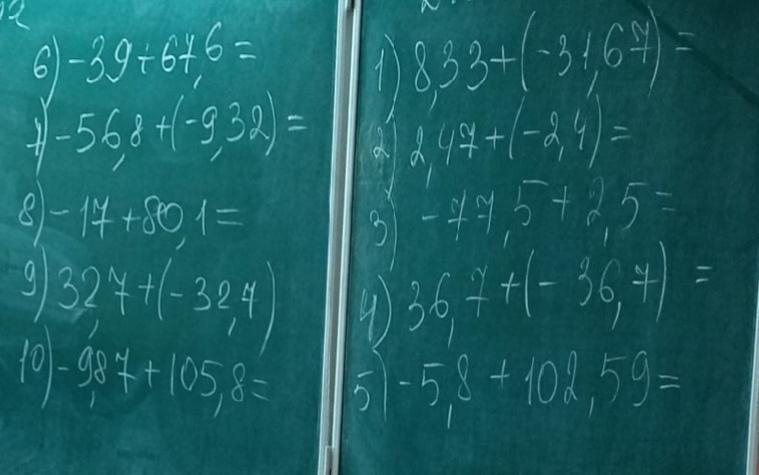 1) 8,33+(-31,67)=
2) 2,47+(-2,4)=
3) -77,5+2,5=
4) 36,7+(-36,7)=
5) -5,8+102,59=
6) -39+67,6=
7) -56,8+(-9,32)=
8) -17+80,1=
9) 32,7+(-32,7)
10) -9,87+105,8=